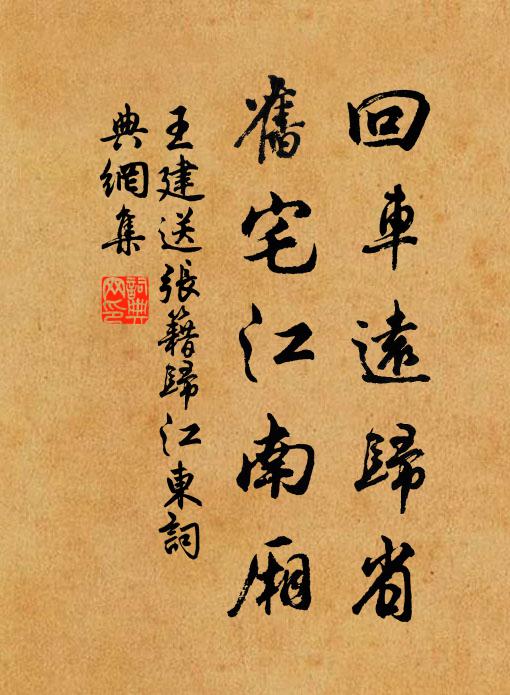 回車遠歸省
舊宅江南廂
王建送張籍歸江東詞
典網集
詞典網印